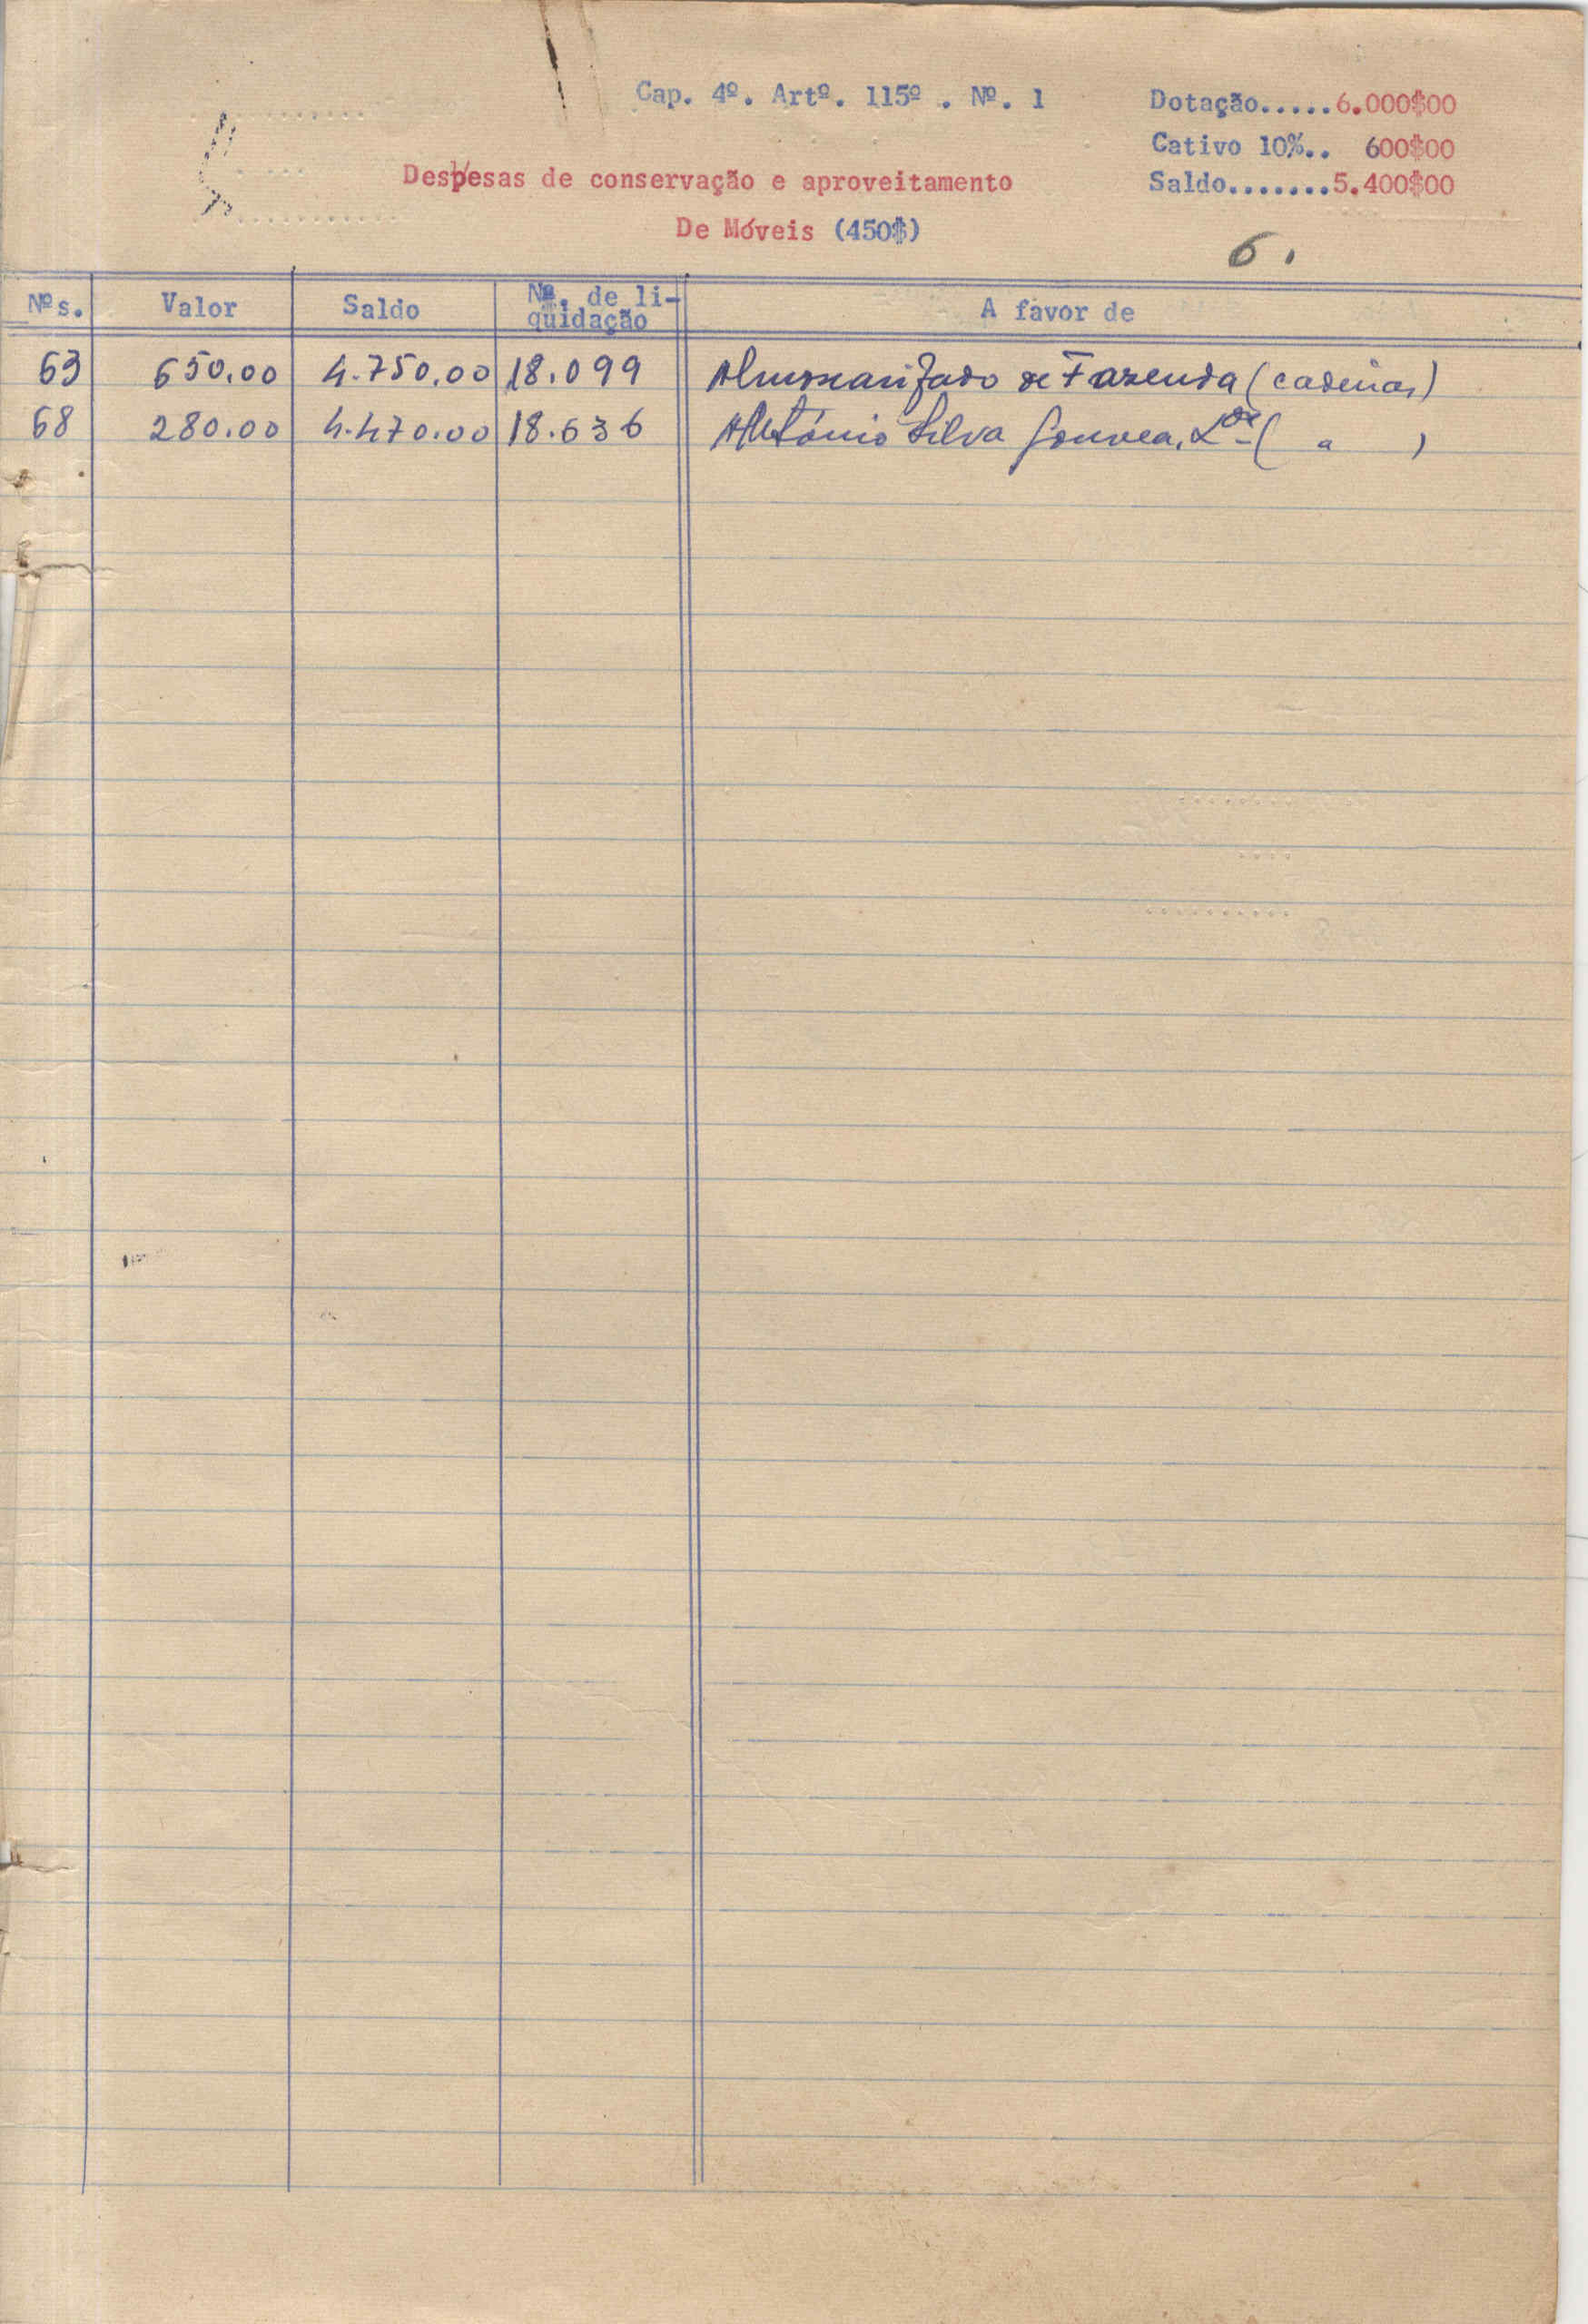 Cap. 4º. Artº. 115º . Nº. 1
Dotação.....6.000$00
Cativo 10%.. 600$00
Saldo.......5.400$00
Despesas de conservação e aproveitamento
De Móveis (450$)
6.
Nºs. Valor Saldo Nº. de li-quidação A favor de
63 650.00 4.750.00 18.099 Almoxarifado de Fazenda (cadeiras)
68 280.00 4.470.00 18.636 António Silva Gouvea, Lda ( " )